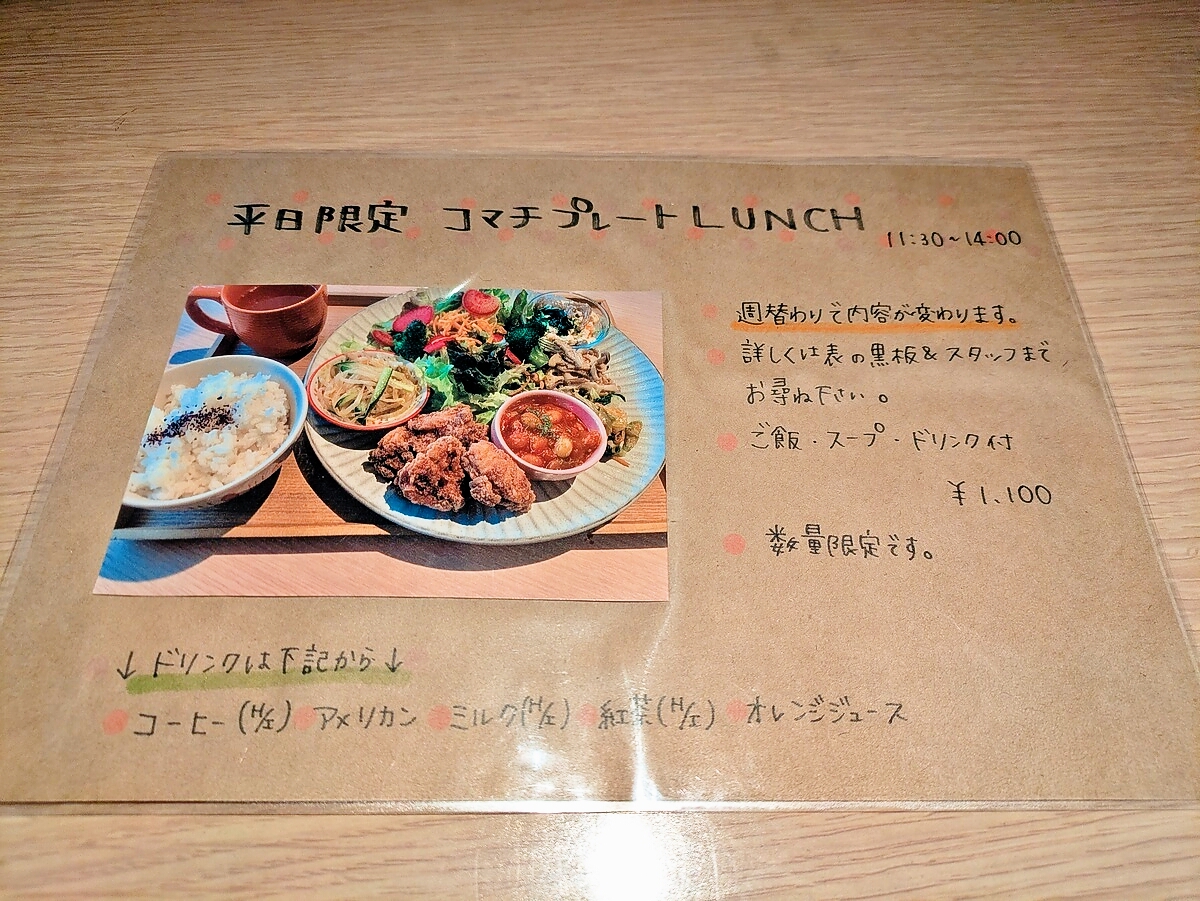 平日限定 コマチプレートLUNCH
11:30~14:00
週替わりで内容が変わります。
詳しくは表の黒板&スタッフまで
お尋ね下さい。
ご飯・スープ・ドリンク付
¥1,100
数量限定です。
↓ドリンクは下記から↓
コーヒー(H/I) アメリカン ミルク(H/I) 紅茶(H/I) オレンジジュース